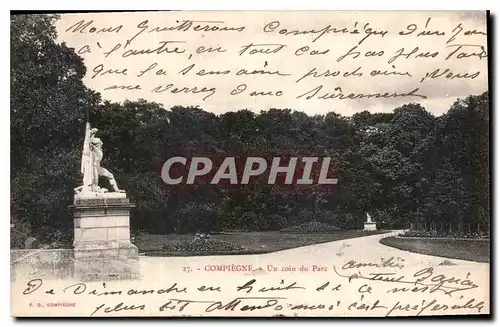 Nous Quitterons Compiégne d'un jour
à l'autre, en tout cas pas plus tard
que la semaine prochaine, vous
me verrez donc surement
CPARAMA.COM
27. - COMPIÈGNE. - Un coin du Parc
amitiés
De Dimanche en huit si ce n'est
plus tôt attend mais c'est préférable
F. D., COMPIÈGNE